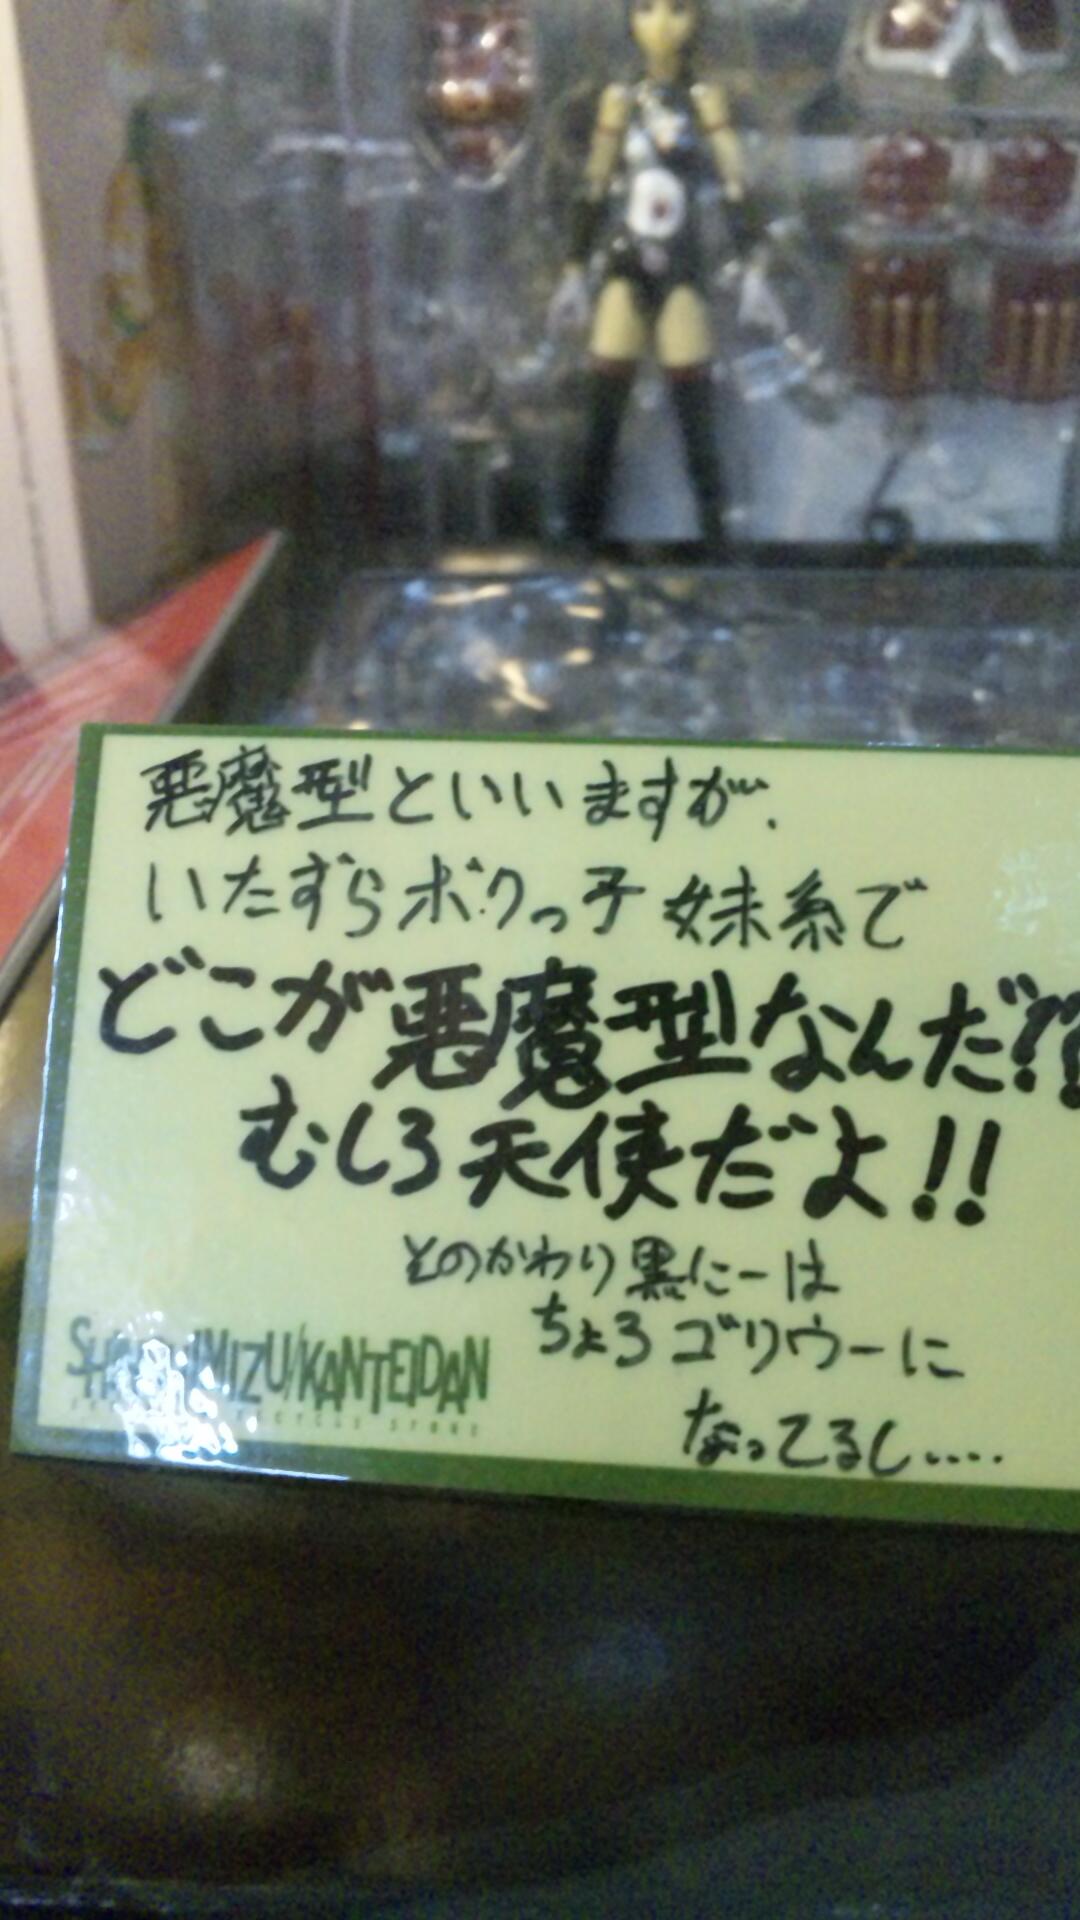 悪魔型といいますが、
いたずらボクっ子 妹系で
どこが悪魔型なんだ!?
むしろ天使だよ!!
そのかわり黒にーは
ちょろゴリウーに
なってるし....
SHIMIZU/KANTEIDAN